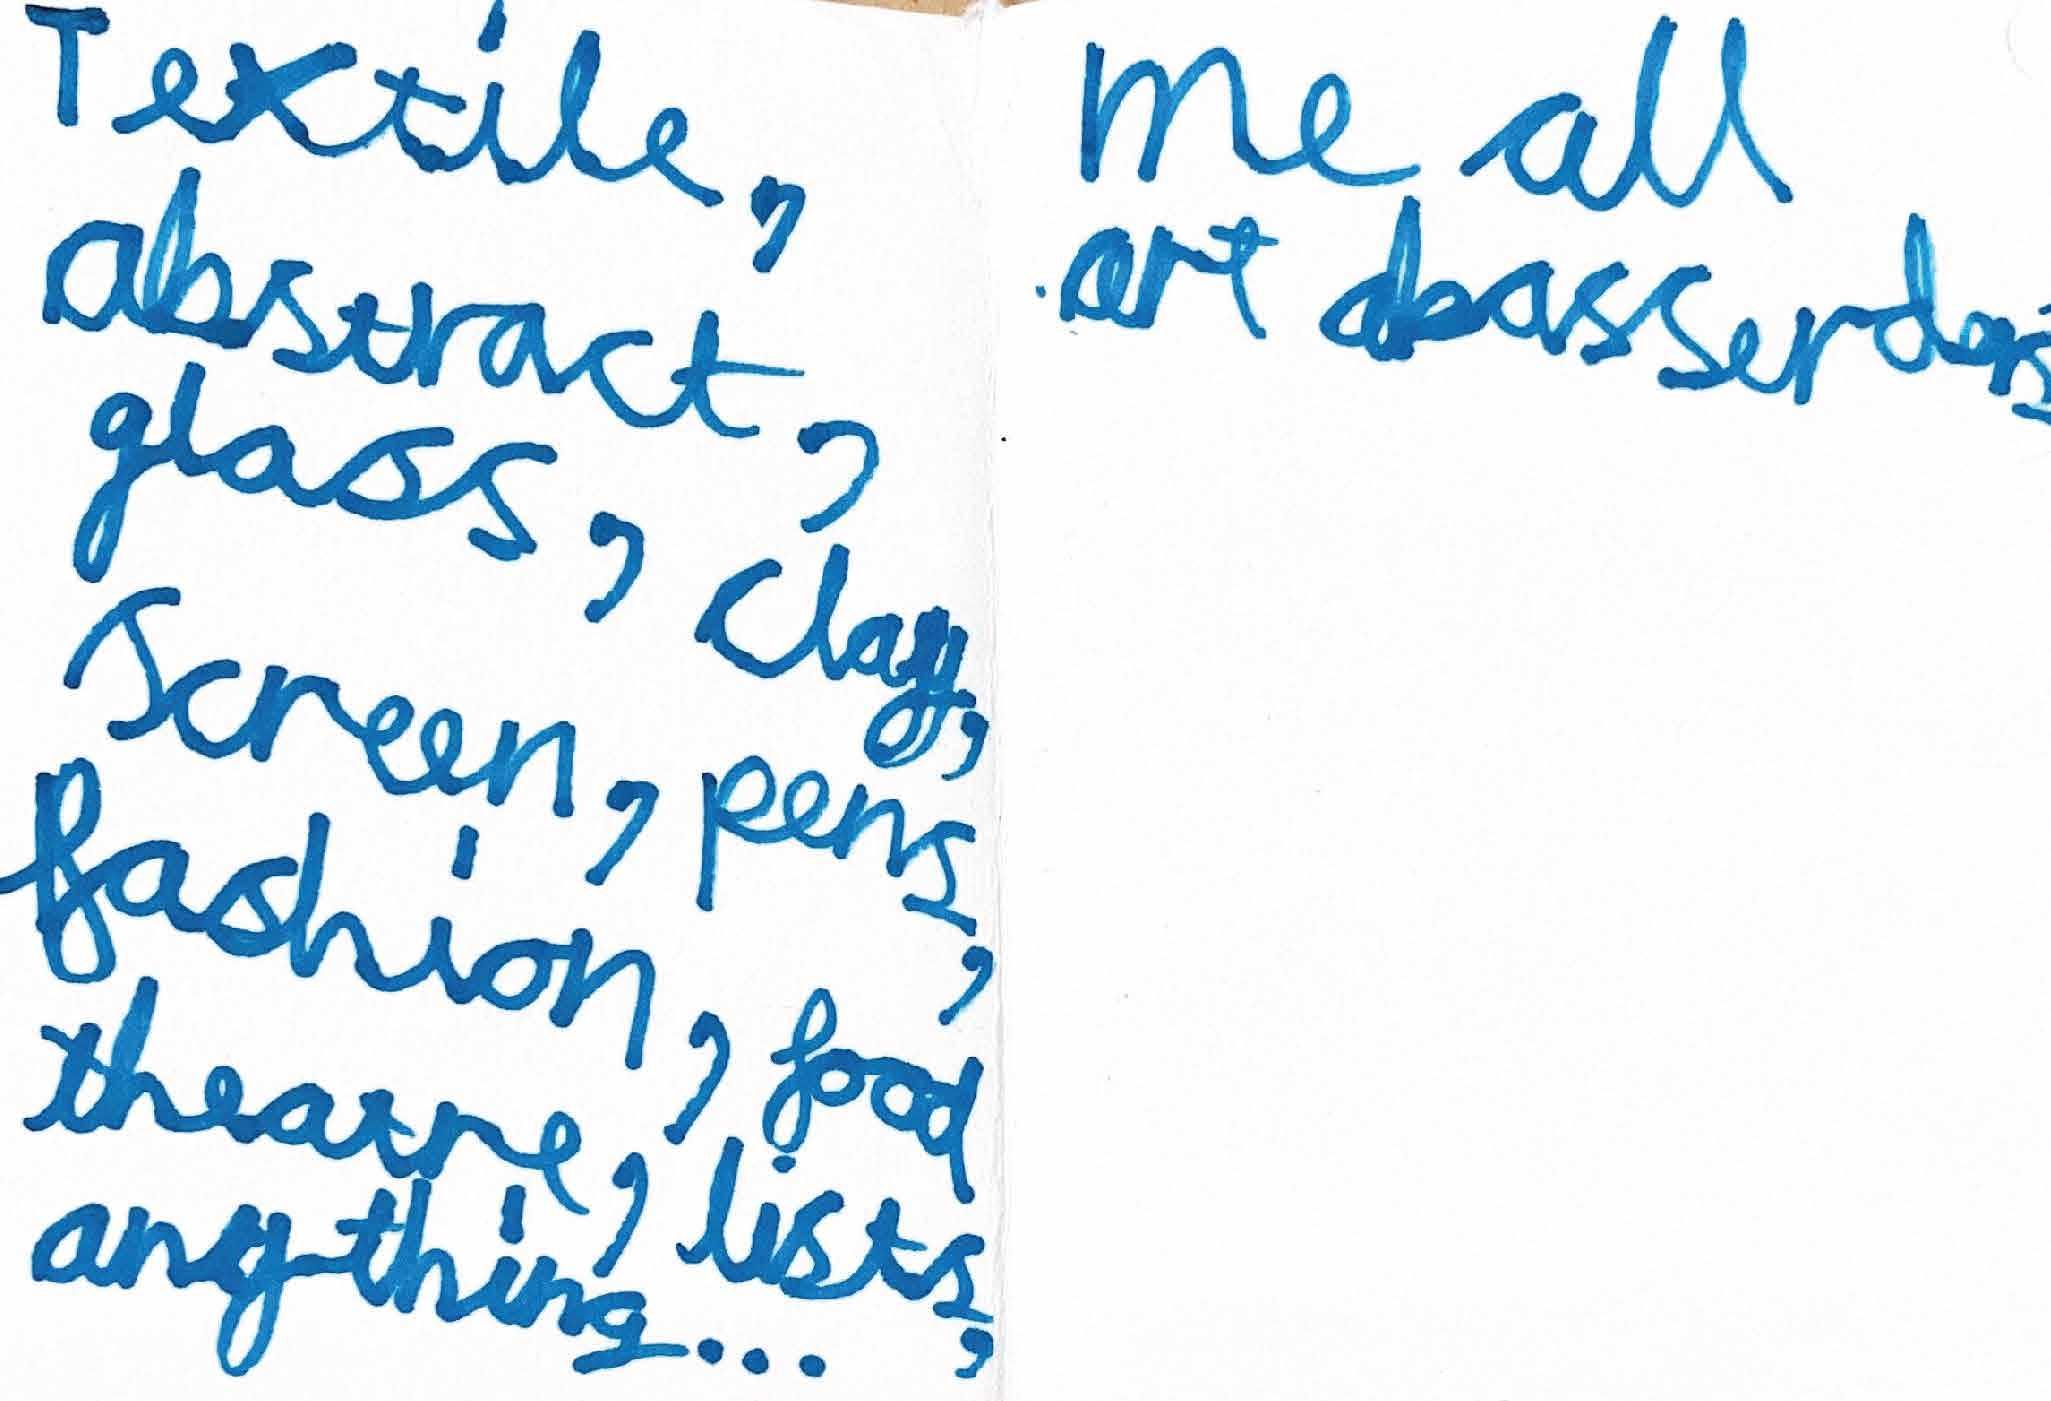 Textile,
abstract,
glass, clay,
screen, pens,
fashion, food
theatre, lists,
anything...
me all
art